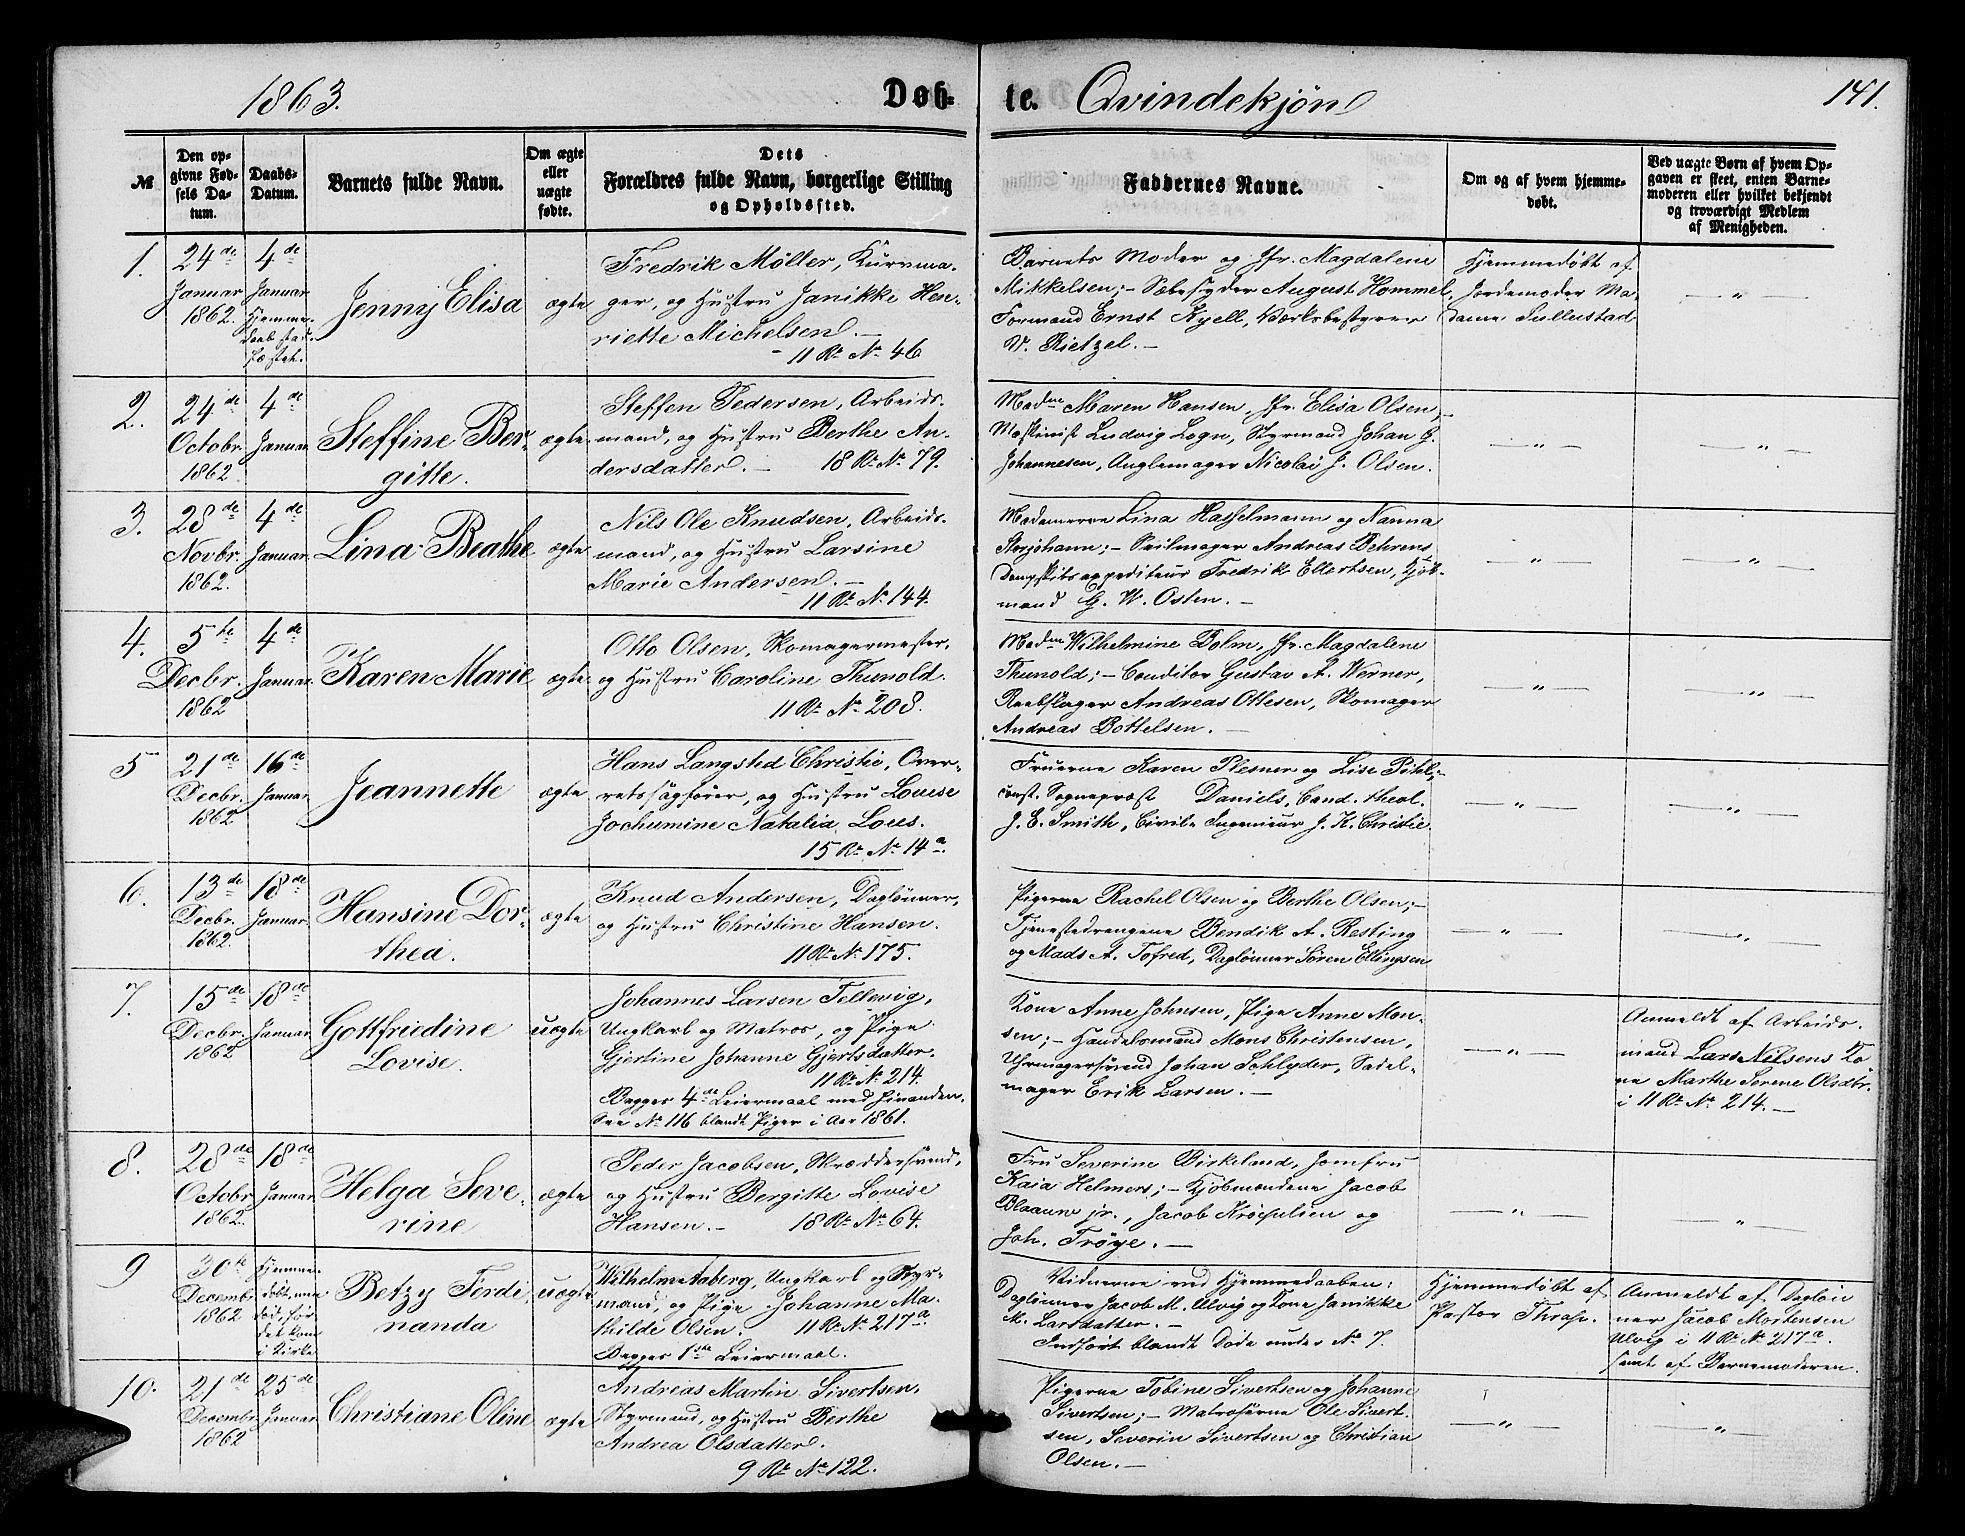 1863.
Døb-
te. Qvindekjøn
141.
№
Den op-
givne Fød-
sels Da-
tum.
Daabs-
Datum.
Barnets fulde Navn.
Om ægte
eller
uægte
fødte.
Dets
Forældres fulde Navn, borgerlige Stilling
og Opholdssted.
Faddernes Navne.
Om og af hvem hjemme-
døbt.
Ved uægte Børn af hvem Op-
gaven er skeet, enten Barne-
moderen eller hvilket bekjendt
og troværdigt Medlem
af Menigheden.
1.
24de
Januar
1862.
4de
Januar
Hjemme-
daab stad-
fæstet.
Jenny Elisa
ægte
Fredrik Møller, Kurvma-
ger, og Hustru Janikke Hen-
riette Michelsen. —
11 R. № 46
Barnets Moder og Jfr. Magdalene
Mikkelsen; - Sæbesyder August Hommel,
Formand Ernst Kyell, Værksbestyrer
V. Rietzel. —
Hjemmedøbt af
Jordemoder Ma-
dame Sullustad
— " —
2.
24de
Octobr.
1862
4de
Januar
Steffine Ber-
gitte.
ægte
Steffen Pedersen, Arbeids-
mand, og Hustru Berthe An-
dersdatter. — 18 R. № 79.
Madme Maren Hansen, Jfr. Elisa Olsen;-
Maskinist Ludvig Logn, Styrmand Johan G.
Johannesen, Anglemager Nicolai J. Olsen.
— " —
— " —
3.
28de
Novbr.
1862.
4de
Januar.
Lina Beathe
ægte
Nils Ole Knudsen, Arbeids-
mand, og Hustru Larsine
Marie Andersen. —
11 R. № 144.
Madamerne Lina Hasselmann og Nanna
Storjohann; - Seilmager Andreas Behrens
Dampskibsexpediteur Fredrik Ellertsen, Kjøb-
mand G. W. Osten. —
— " —
— " —
4.
5te
Decbr.
1862
4de
Januar.
Karen Marie
ægte
Otto Olsen, Skomagermester,
og Hustru Caroline Thunold.
11 R. № 208.
Madme Wilhelmine Bolm, Jfr. Magdalene
Thunold; - Conditor Gustav A. Werner,
Reebslager Andreas Ottesen, Skomager
Andreas Bottelsen. —
— " —
— " —
5
21de
Decbr.
1862
16de
Januar.
Jeannette
ægte
Hans Langsted Christie, Over-
retssagfører, og Hustru Lovise
Jochumine Natalia Lous.
15 R. № 14a.
Fruerne Karen Plesner og Lise Pihl;-
const. Sognepræst Daniels, Cand. theol.
J. E. Smith, Civile Ingenieur J. K. Christie.
— " —
— " —
6.
13de
Decbr.
1862.
18de
Januar.
Hansine Dor-
thea.
ægte
Knud Andersen, Daglønner,
og Hustru Christine Hansen.
11 R. № 175.
Pigerne Rachel Olsen og Berthe Olsen;-
Tjenestedrengene Bendik A. Resting
og Mads A. Tofred, Daglønner Søren Ellingsen
— " —
— " —
7.
15de
Decbr.
1862
18de
Januar.
Gottfriedine
Lovise.
uægte
Johannes Larsen Tellevig,
Ungkarl og Matros, og Pige
Gjertine Johanne Gjertsdatter.
11 R. № 214.
Begges 4de Leiermaal med hinanden.
See № 116 blandt Piger i Aar 1861.
Kone Anne Johnsen, Pige Anne Mon-
sen; - Handelsmand Mons Christensen,
Uhrmagersvend Johan Schlyder, Sadel-
mager Erik Larsen. —
— " —
Anmeldt af Arbeids-
mand Lars Nilsens Ko-
ne Marthe Serene Olsdtr.
i 11 R. № 214. —
8.
28de
Octobr
1862.
18de
Januar.
Helga Seve-
rine
ægte
Peder Jacobsen, Skræddersvend,
og Hustru Bergitte Lovise
Hansen. - 18 R. № 64.
Fru Severine Birkeland, Jomfru
Kaia Helmers; - Kjøbmændene Jacob
Blaauw jr., Jacob Krøepelien og
Joh. Trøye. —
— " —
— " —
9
30te
Decembr
1862
Hjemme-
døbt, men
død, før
det kom
i Kirke
Betzy Ferdi-
nanda
uægte
Wilhelm Aaberg, Ungkarl og Styr-
mand, og Pige Johanne Ma-
thilde Olsen. 11 R. № 217a.
Begges 1ste Leiermaal.
Vidnerne ved Hjemmedaaben:
Daglønner Jacob M. Ulvig og Kone Janikke
M. Larsdatter. —
Indført blandt Døde under № 7.
Hjemmedøbt af
Pastor Thrap.
Anmeldt af Dagløn-
ner Jacob Mortensen
Ulvig i 11 R. № 217a.
samt af Barnemoderen.
10.
21de
Decembr
1862
25de
Januar
Christiane Oline
ægte
Andreas Martin Sivertsen,
Styrmand, og Hustru Berthe
Andrea Olsdatter.
9 R. № 122.
Pigerne Tobine Sivertsen og Johanne
Sivertsen; - Matroserne Ole Sivert-
sen, Severin Sivertsen og Christian
Olsen. —
— " —
— " —